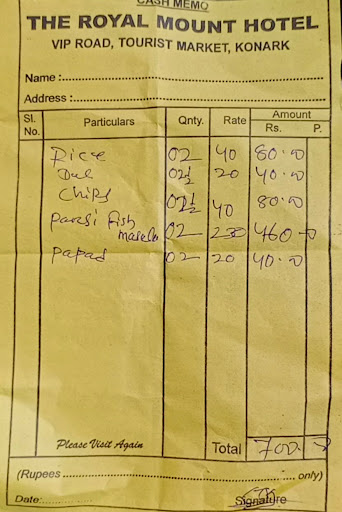 CASH MEMO
THE ROYAL MOUNT HOTEL
VIP ROAD, TOURIST MARKET, KONARK
Name :
Address :
Sl. No. Particulars Qnty. Rate Amount Rs. P.
Rice 02 40 80.00
Dal 02½ 20 40.00
Chips 02½ 40 80.00
fish
Masala 02 230 460-0
Papad 02 20 40.00
Please Visit Again Total 700.0
(Rupees only)
Date: Signature